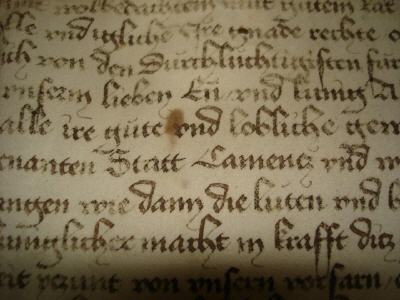 wolbedachtem mut gutem rat
alle und igliche ire gnade rechte
ich von den Durchluchtigisten fur
unserm lieben En und kunig A
alle ire gute und lobliche gew
enanten Statt Camentz und w
ungen wie dann die luten und b
kuniglicher macht in krafft ditz
eit von unsern vorfarn